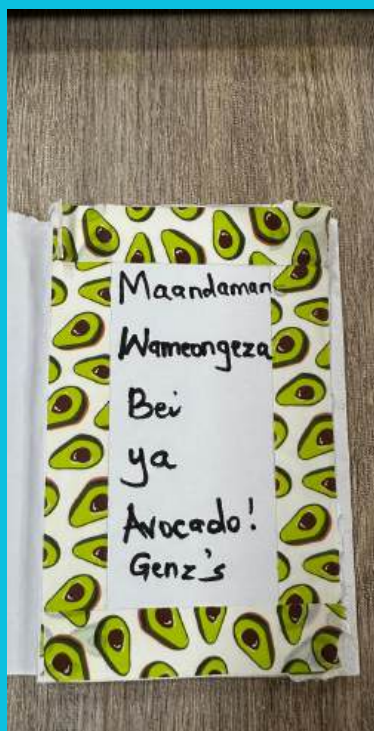 Maandaman
Wameongeza
Bei
ya
Avocado!
Genz's